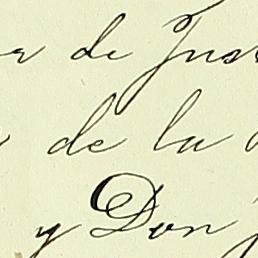 de Jus
de la
y Don